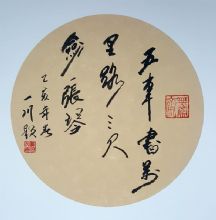 五車書萬
里路三尺
劍一張琴
乙亥年春
一川題